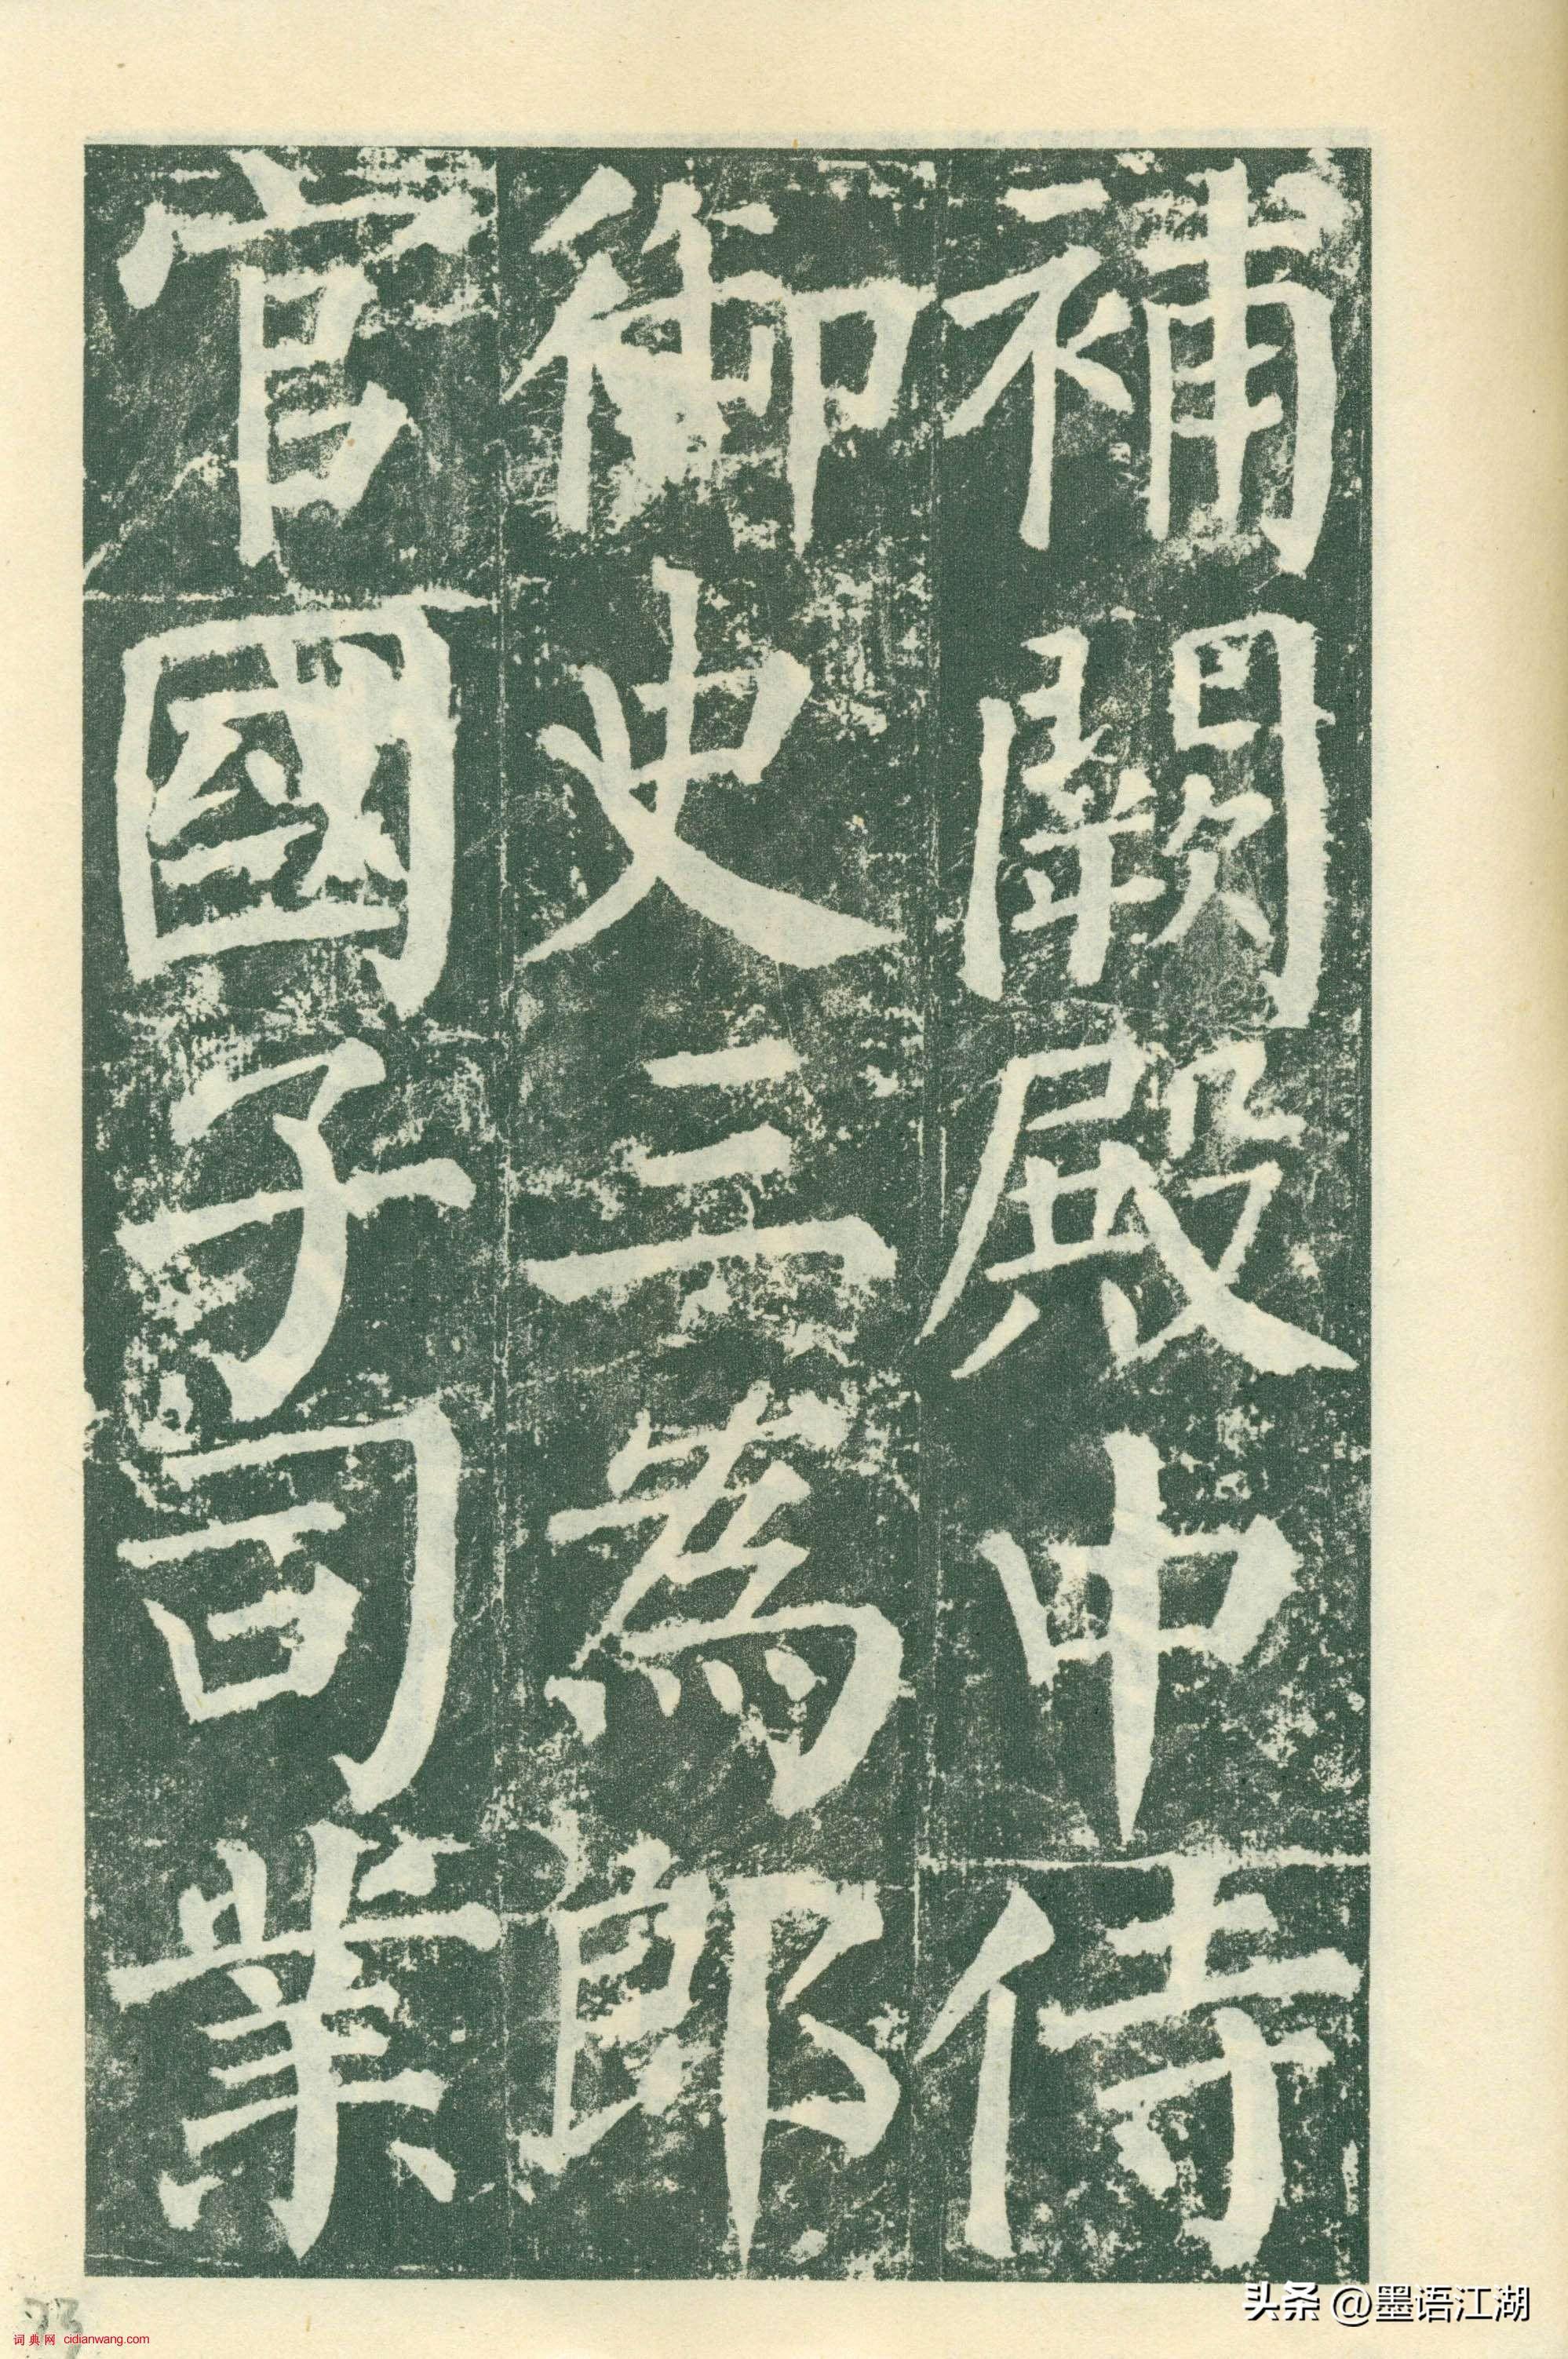 補闕殿中侍
御史三為郎
官國子司業
头条 @墨语江湖
73
词典网 cidianwang.com